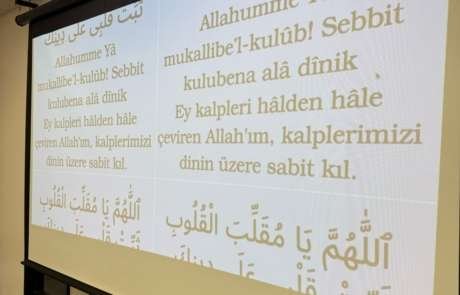 ثَبِّتْ قَلْبِي عَلَى دِينِكَ
Allahumme Yâ
mukallibe'l-kulûb! Sebbit
kulubena alâ dînik
Ey kalpleri hâlden hâle
çeviren Allah'ım, kalplerimizi
dinin üzere sabit kıl.
اَللّٰهُمَّ يَا مُقَلِّبَ الْقُلُوبِ
Allahumme Yâ
mukallibe'l-kulûb! Sebbit
kulubena alâ dînik
Ey kalpleri hâlden hâle
çeviren Allah'ım, kalplerimizi
dinin üzere sabit kıl.
اَللّٰهُمَّ يَا مُقَلِّبَ الْقُلُوبِ